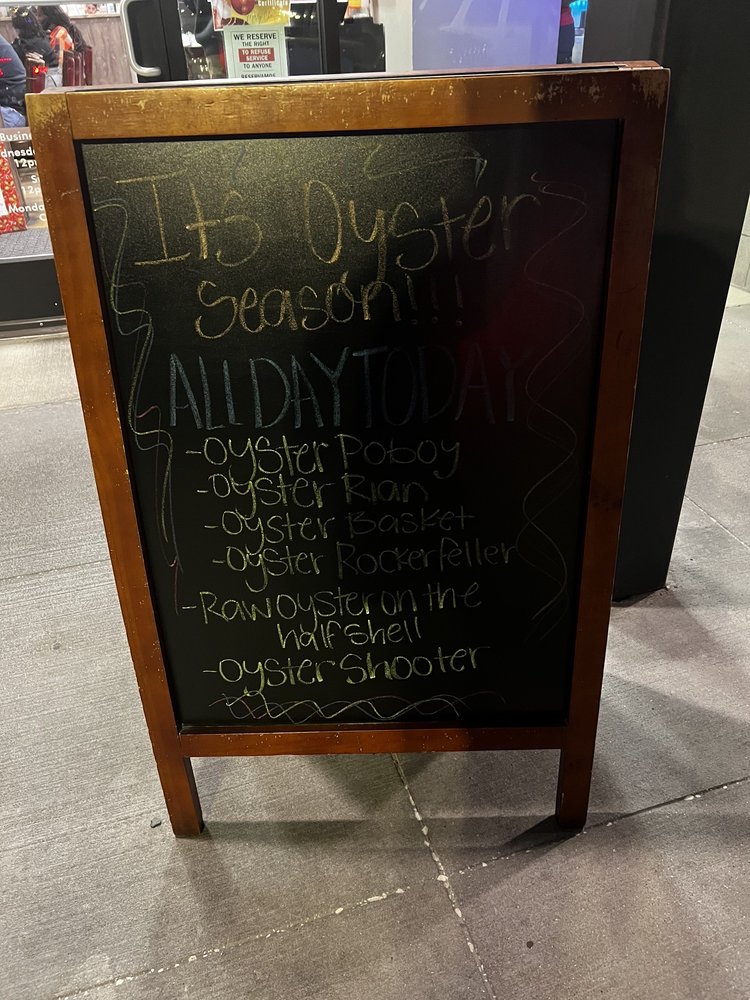 Certificate
WE RESERVE
THE RIGHT
TO REFUSE
SERVICE
TO ANYONE
RESERVAMOS
Busin
dnesda
12p
12p
Monda
Its Oyster
Season!!!
ALL DAY TODAY
-Oyster Poboy
-Oyster Rian
-Oyster Basket
-Oyster Rockerfeller
-Raw oyster on the
halfshell
-Oyster Shooter